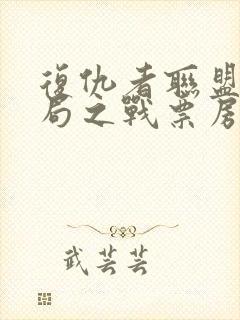 復仇者聯盟
局之戰票房
武芸芸